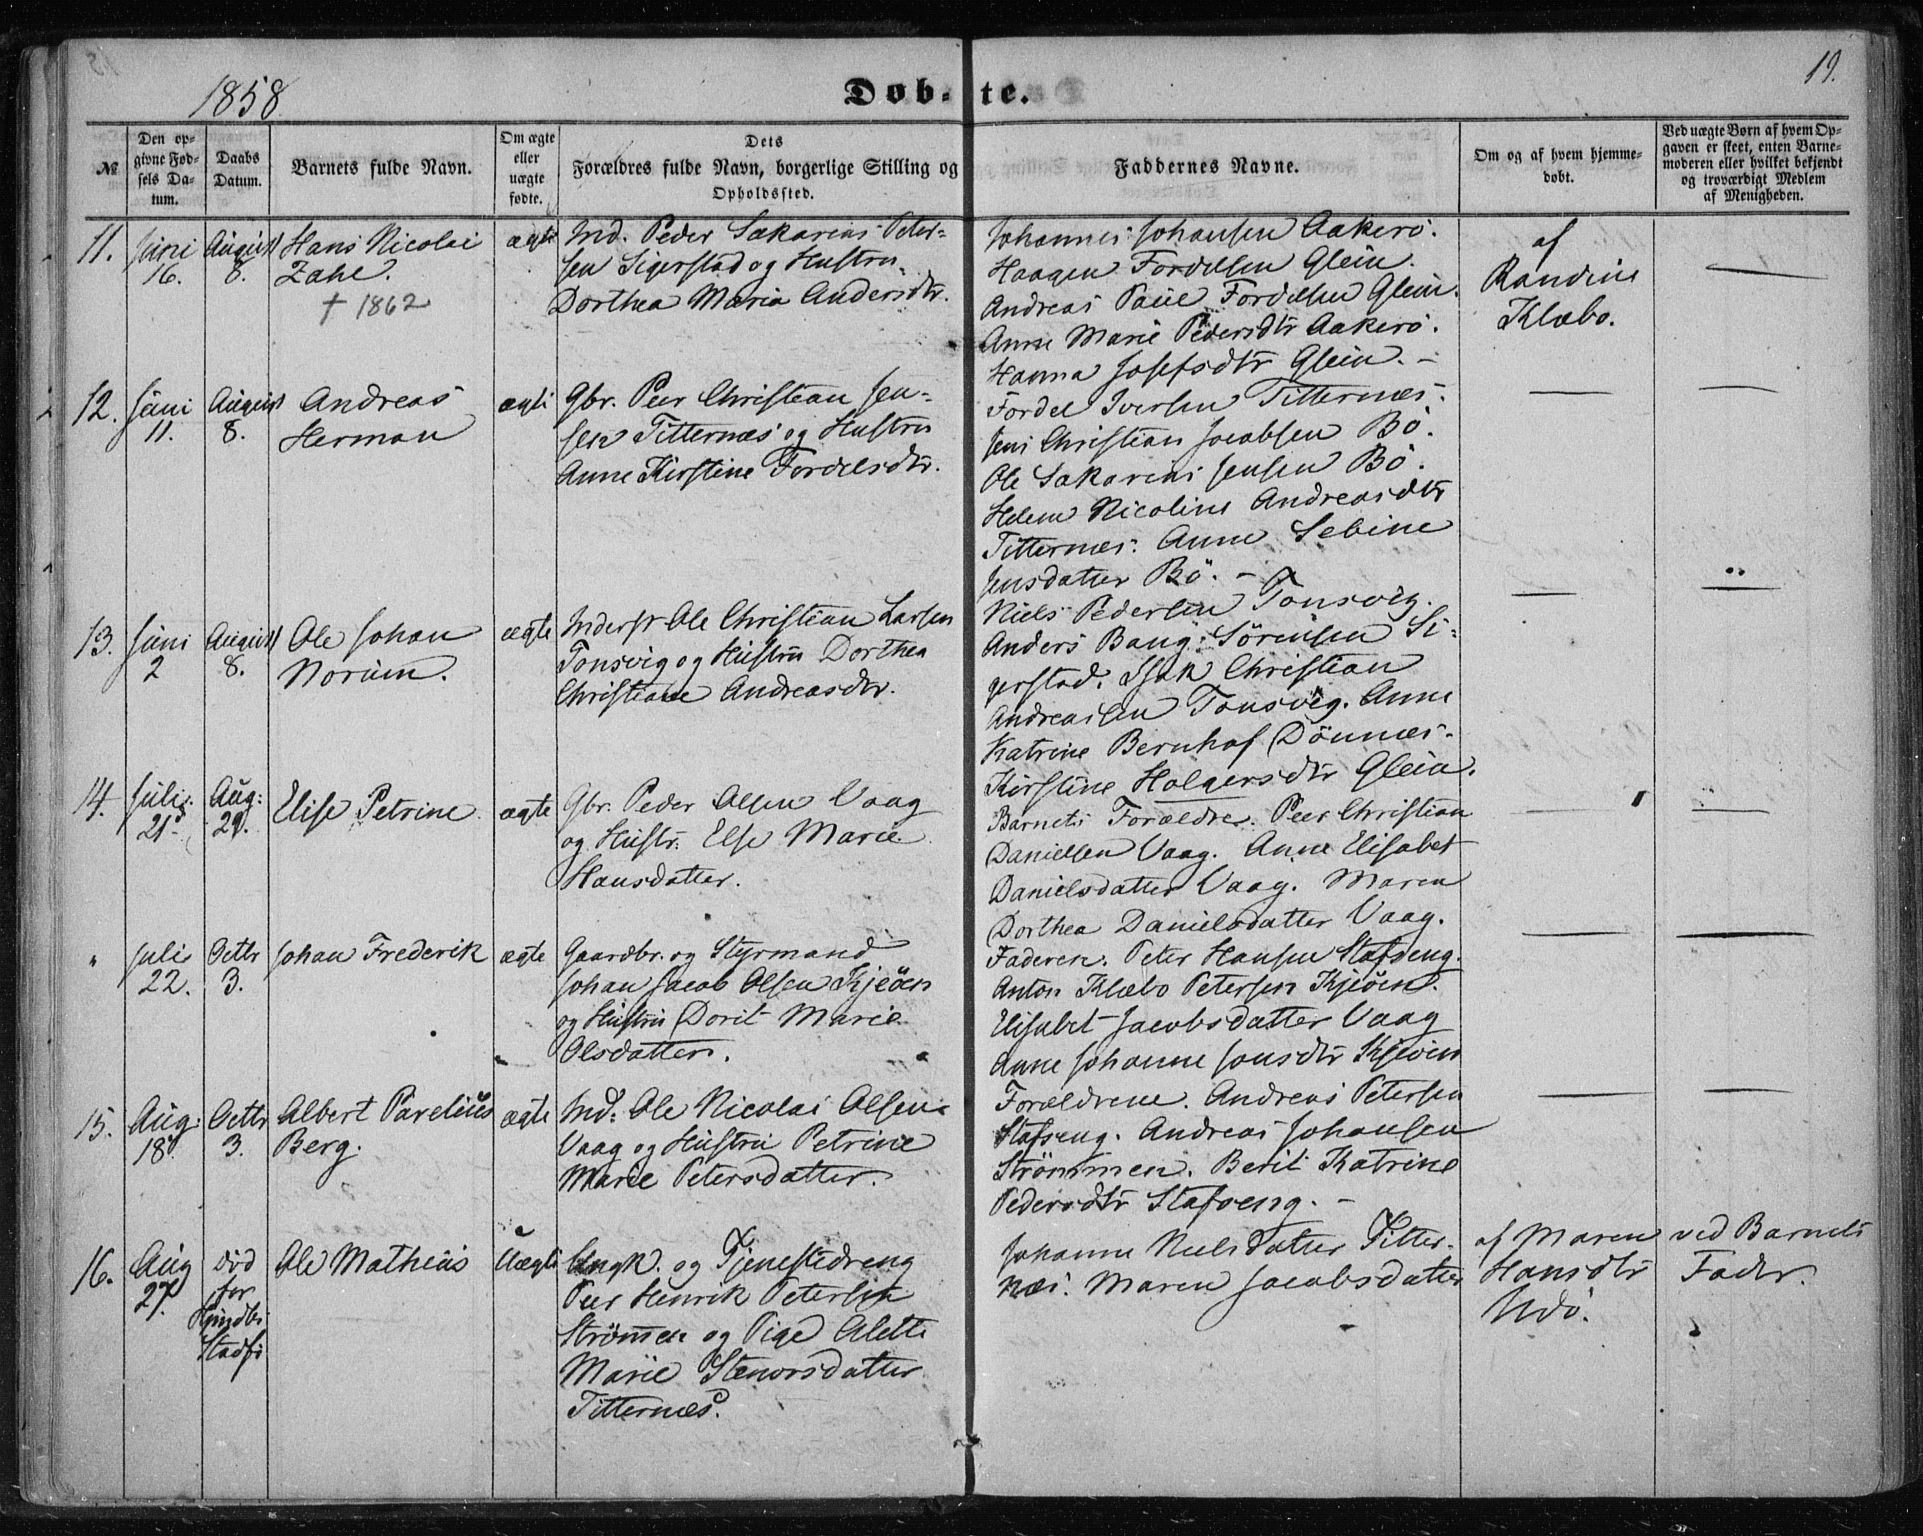 1858.
Døb-te.
19.
№
Den op-
givne Fød-
sels Da-
tum.
Daabs
Datum.
Barnets fulde Navn.
Om ægte
eller
uægte
fødte.
Dets
Forældres fulde Navn, borgerlige Stilling og
Opholdssted.
Faddernes Navne.
Om og af hvem hjemme-
døbt.
Ved uægte Børn af hvem Op-
gaven er skeet, enten Barne-
moderen eller hvilket bekjendt
og troværdigt Medlem
af Menigheden.
11.
Juni
16.
August
8.
Hans Nicolai
Zahl.
† 1862
ægte
Ind. Peder Sakarias Peter-
sen Sigerstad og Hustru
Dorthea Maria Andersdtr.
Johannes Johansen Aakerö.
Haagen Fordelsen Glein.
Andreas Paul Fordelsen Glein.
Anne Marie Pedersdtr Aakerö.
Hanna Josefsdtr Glein. –
af
Randine
Klæbo.
12.
Juni
11.
August
8.
Andreas
Herman
ægte
Gbr. Peer Christian Jen-
sen Titternæs og Hustru
Anne Kirstine Fordelsdtr.
Fordel Iversen Titternæs.
Jens Christian Jacobsen Bö.
Ole Sakarias Jensen Bö.
Helene Nicoline Andreasdtr
Titternæs. Anne Sebine
Jensdatter Bö. –
13.
Juni
2
August
8.
Ole Johan
Norum.
ægte
Inderst Ole Christian Larsen
Tonsvig og Hustru Dorthea
Christiane Andreasdtr.
Niels Pedersen Tonsvig.
Anders Bang Sörensen Si-
gerstad. Isak Christian
Andreassen Tonsvig. Anne
Katrine Bernhof Dönnæs.
Kirstine Holgersdtr Glein.
14.
Juli
21.
Aug:
29.
Elise Petrine
ægte
Gbr. Peder Olsen Vaag
og Hustr. Else Marie
Hansdatter.
Barnets Forældre. Peer Christian
Danielsen Vaag. Anne Elisabet
Danielsdatter Vaag. Maren
Dorthea Danielsdatter Vaag.
"
Juli
22.
Octbr
3.
Johan Frederik
ægte
Gaardbr. og Styrmand
Johan Jacob Olsen Kjeöen
og Hustru Dorit Marie
Olsdatter.
Faderen. Peter Hansen Stafseng.
Anton Klæbo Petersen Kjeöen.
Elisabet Jacobsdatter Vaag
Anne Johanne Jonsdtr Kjeöen
15.
Aug:
18.
Octbr
3.
Albert Parelius
Berg.
ægte
Ind. Ole Nicolai Olsen
Vaag og Hustru Petrine
Marie Petersdatter.
Forældrene. Andreas Petersen
Stafseng. Andreas Johansen
Strömmen. Berit Katrine
Pedersdtr Stafseng. –
16.
Aug
27.
død
før
Stadf.
Ole Mathias
Uægte
Ungk. og Tjenestedreng
Peer Henrik Petersen
Strömmen og Pige Alette
Marie Stenorsdatter
Titternæs.
Johanne Nielsdatter Titter-
næs. Maren Jacobsdatter
af Maren
Hansdtr
Udö.
ved Barnets
Fader.